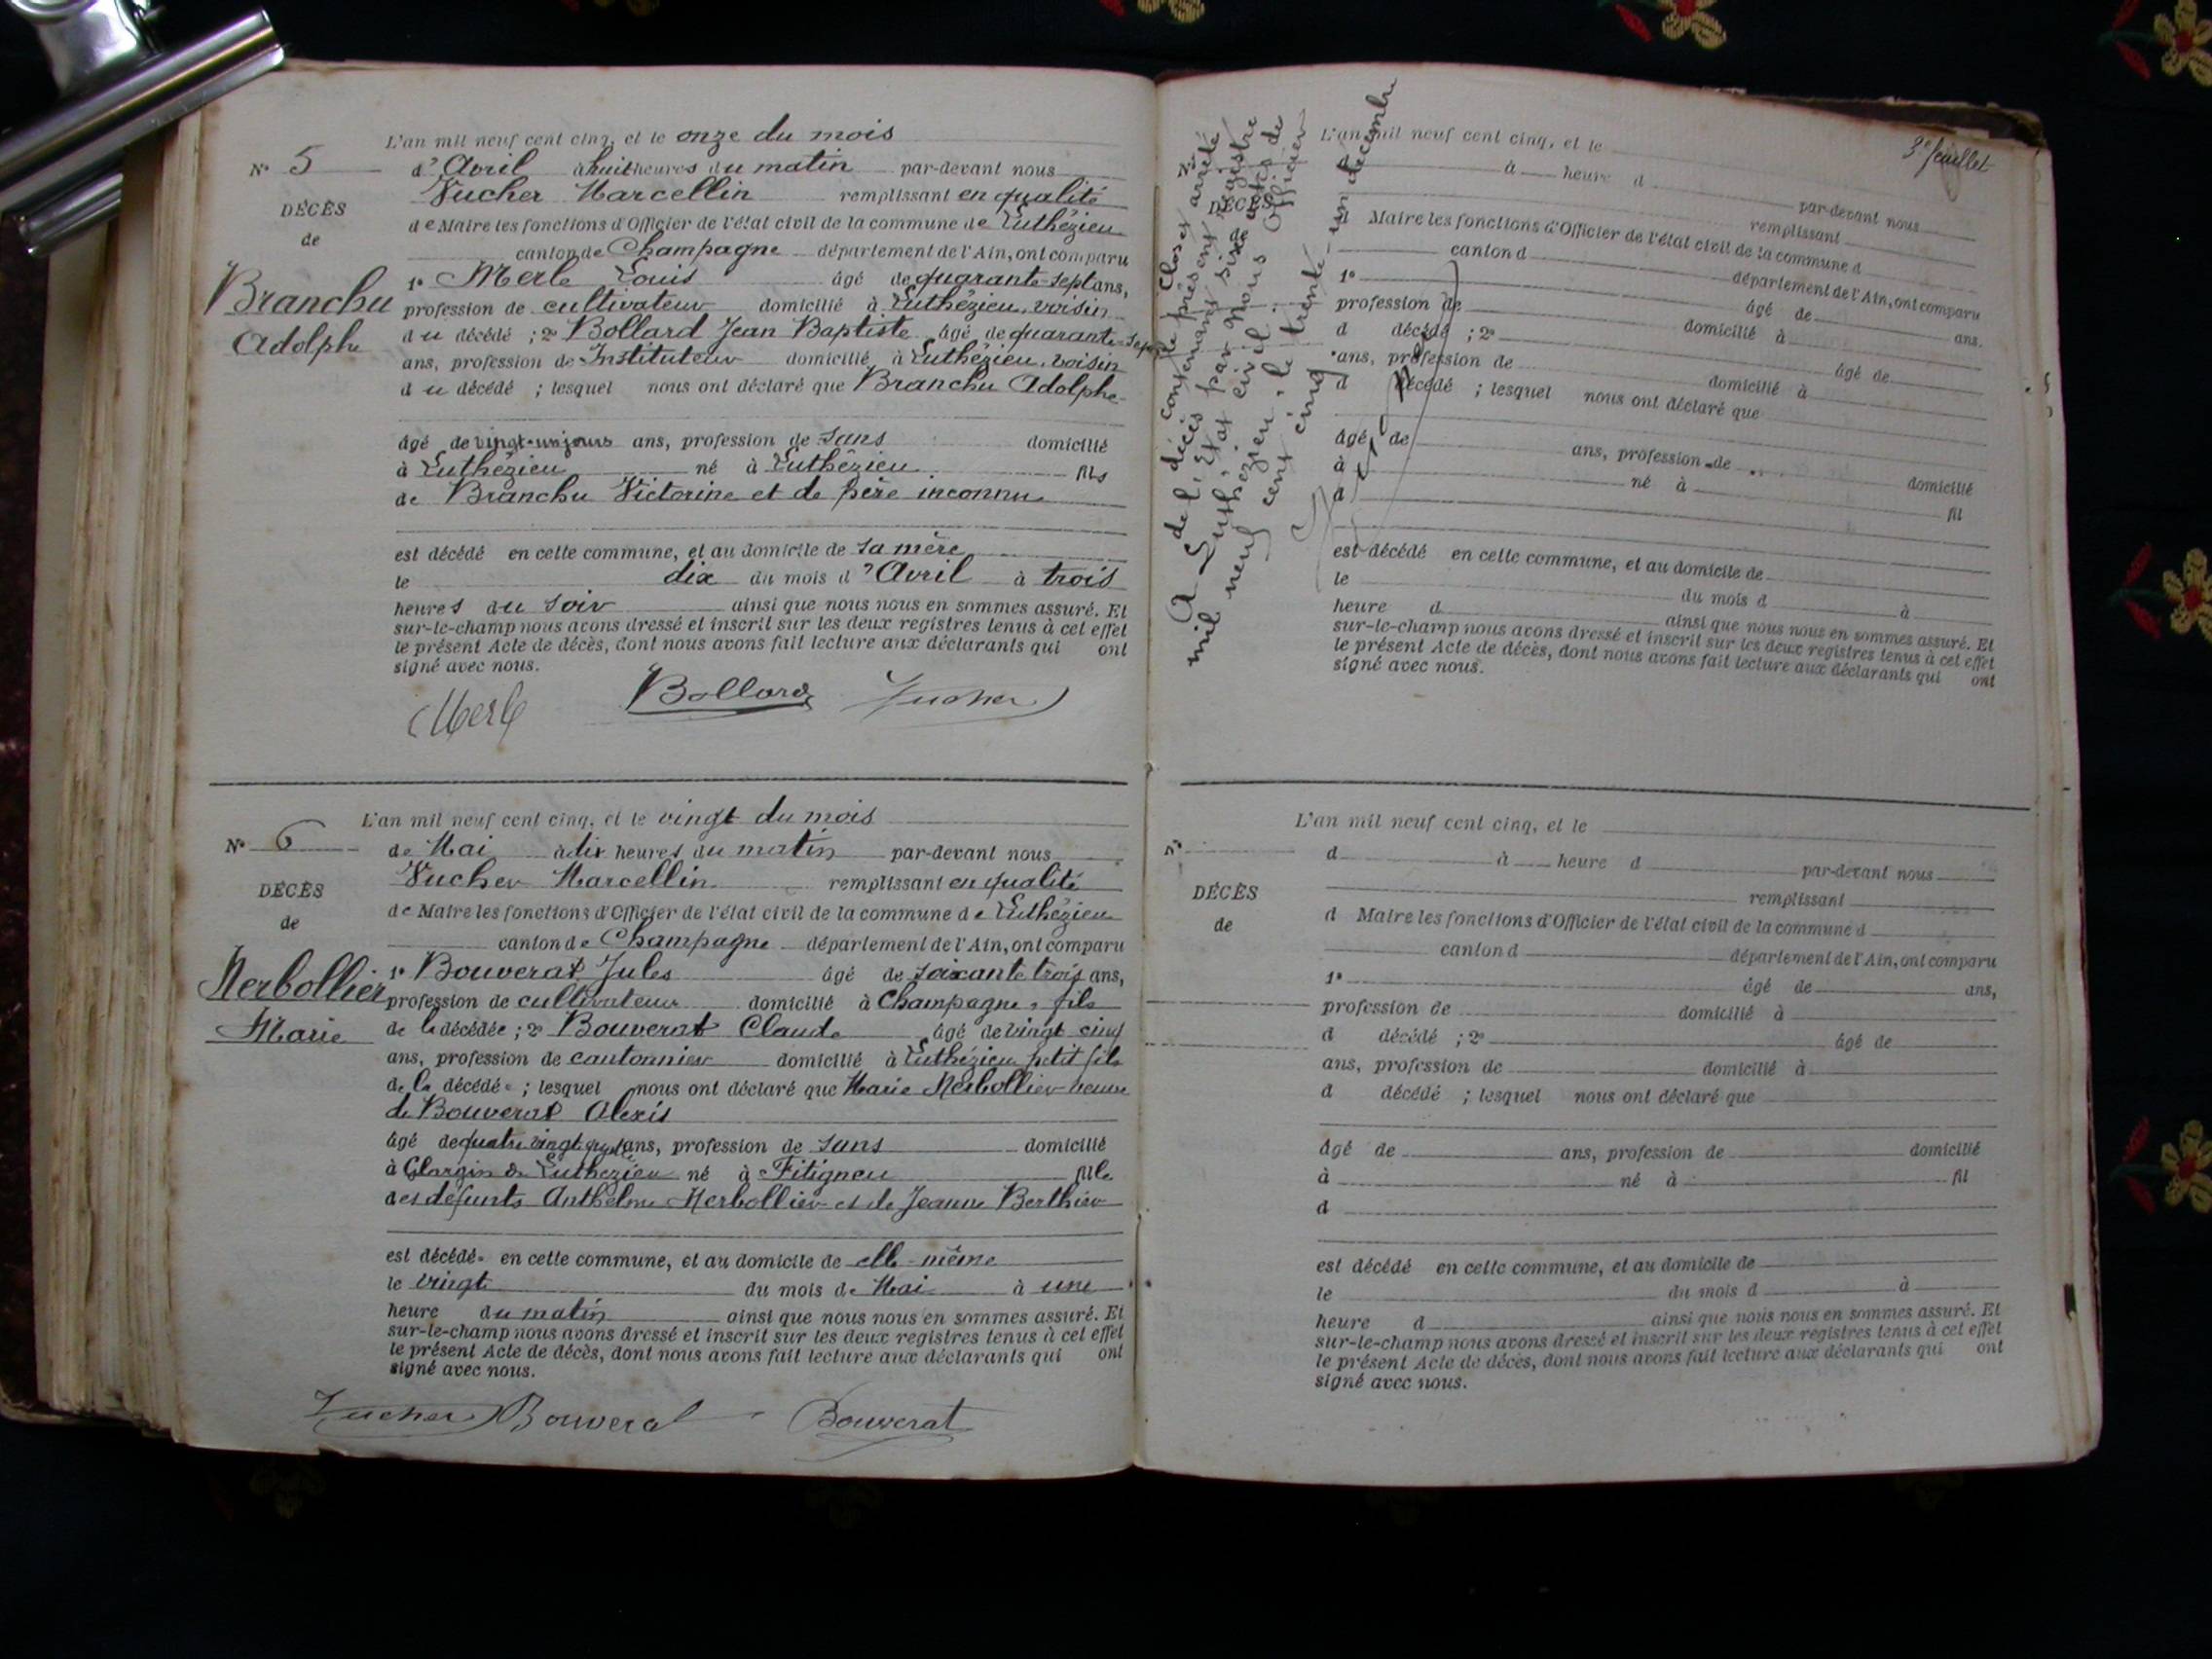 L'an mil neuf cent cinq, et le onze du mois
N° 5 d'Avril à huit heures du matin par-devant nous
Vucher Marcellin remplissant en qualité
DÉCÈS
de Maire les fonctions d'Officier de l'état civil de la commune de Luthézieu
de
canton de Champagne département de l'Ain, ont comparu
1° Merle Louis âgé de quarante-sept ans,
Branchu
profession de cultivateur domicilié à Luthézieu, voisin
Adolphe
du décédé ; 2° Bollard Jean Baptiste âgé de quarante-sept
ans, profession de Instituteur domicilié à Luthézieu, voisin
du décédé ; lesquel nous ont déclaré que Branchu Adolphe
âgé de vingt-un jours ans, profession de sans domicilié
à Luthézieu né à Luthézieu fils
de Branchu Victorine et de père inconnu
est décédé en cette commune, et au domicile de sa mère
le dix du mois d'Avril à trois
heures du soir ainsi que nous nous en sommes assuré. Et
sur-le-champ nous avons dressé et inscrit sur les deux registres tenus à cet effet
le présent Acte de décès, dont nous avons fait lecture aux déclarants qui ont
signé avec nous.
Merle Bollard Vucher
L'an mil neuf cent cinq, et le vingt du mois
N° 6 de Mai à dix heures du matin par-devant nous
Vucher Marcellin remplissant en qualité
DÉCÈS
de Maire les fonctions d'Officier de l'état civil de la commune de Luthézieu
de
canton de Champagne département de l'Ain, ont comparu
1° Bouverat Jules âgé de soixante trois ans,
Nerbollier
profession de cultivateur domicilié à Champagne, fils
Marie
de la décédée ; 2° Bouverat Claude âgé de vingt cinq
ans, profession de cantonnier domicilié à Luthézieu petit fils
de la décédée ; lesquel nous ont déclaré que Marie Nerbollier veuve
de Bouverat Alexis
âgé de quatre vingt ans, profession de sans domicilié
à de Luthézieu né à Fitigneu fille
des défunts Anthelme Nerbollier et de Jeanne Berthier
est décédé en cette commune, et au domicile de elle-même
le vingt du mois de Mai à une
heure du matin ainsi que nous nous en sommes assuré. Et
sur-le-champ nous avons dressé et inscrit sur les deux registres tenus à cet effet
le présent Acte de décès, dont nous avons fait lecture aux déclarants qui ont
signé avec nous.
Vucher Bouverat Bouverat
3e feuillet
Clos et arrêté
le présent registre
de décès contenant six actes de
de l'Etat civil par nous Officier
A Luthézieu, le trente-un décembre
mil neuf cent cinq
L'an mil neuf cent cinq, et le
à heure d par-devant nous
remplissant
DÉCÈS
d Maire les fonctions d'Officier de l'état civil de la commune d
de
canton d département de l'Ain, ont comparu
1° âgé de ans.
profession de domicilié à
d décédé ; 2° âgé de
ans, profession de domicilié à
d décédé ; lesquel nous ont déclaré que
âgé de ans, profession de domicilié
à né à fil
d
est décédé en cette commune, et au domicile de
le du mois d à
heure d ainsi que nous nous en sommes assuré. Et
sur-le-champ nous avons dressé et inscrit sur les deux registres tenus à cet effet
le présent Acte de décès, dont nous avons fait lecture aux déclarants qui ont
signé avec nous.
L'an mil neuf cent cinq, et le
N° d à heure d par-devant nous
remplissant
DÉCÈS
d Maire les fonctions d'Officier de l'état civil de la commune d
de
canton d département de l'Ain, ont comparu
1° âgé de ans,
profession de domicilié à
d décédé ; 2° âgé de
ans, profession de domicilié à
d décédé ; lesquel nous ont déclaré que
âgé de ans, profession de domicilié
à né à fil
d
est décédé en cette commune, et au domicile de
le du mois d à
heure d ainsi que nous nous en sommes assuré. Et
sur-le-champ nous avons dressé et inscrit sur les deux registres tenus à cet effet
le présent Acte de décès, dont nous avons fait lecture aux déclarants qui ont
signé avec nous.